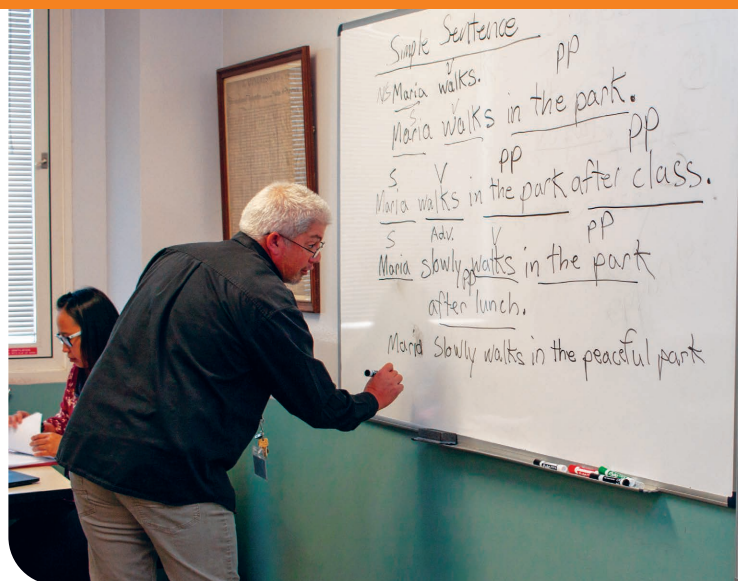 Simple Sentence
V PP
NS Maria walks.
S V
Maria walks in the park.
S V PP PP
Maria walks in the park after class.
S Adv. V PP
Maria slowly walks in the park
PP
after lunch.
Maria slowly walks in the peaceful park